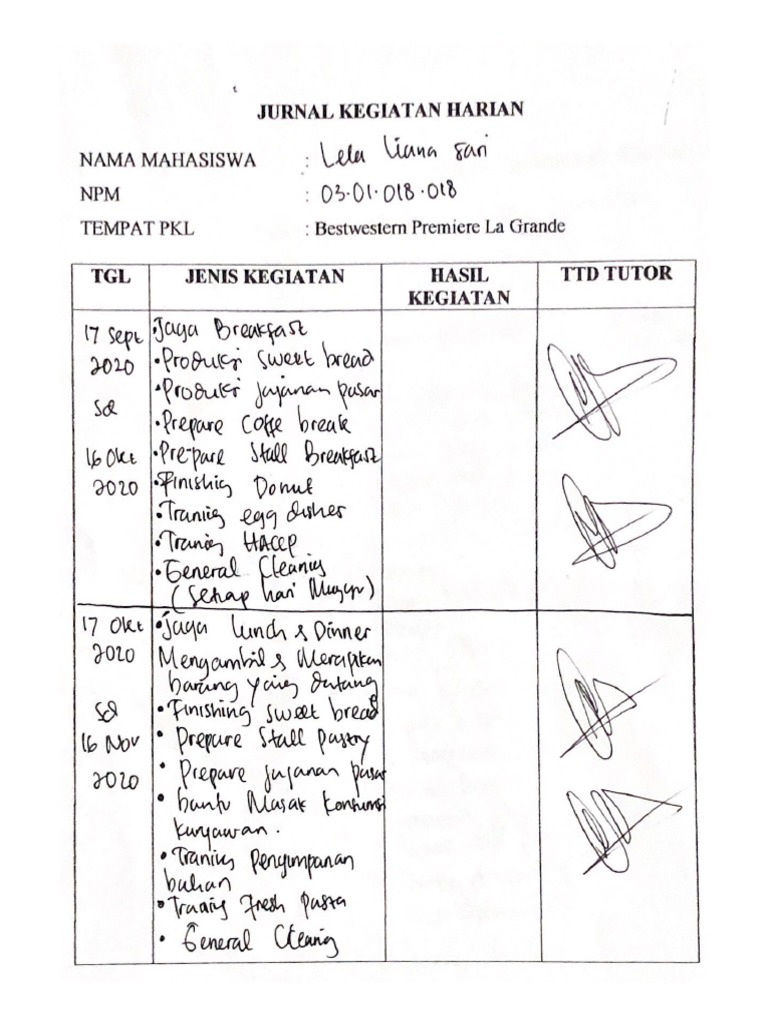 JURNAL KEGIATAN HARIAN
NAMA MAHASISWA : Lela Liana Sari
NPM : 03.01.018.018
TEMPAT PKL : Bestwestern Premiere La Grande
TGL JENIS KEGIATAN HASIL KEGIATAN TTD TUTOR
17 Sept 2020 sd 16 Okt 2020
• Jaga Breakfast
• Produksi sweet bread
• Produksi jajanan pasar
• Prepare coffe break
• Prepare Stall Breakfast
• Finishing Donut
• Traning egg disher
• Traning HACCP
• General Cleaning
(Setiap hari Minggu)
17 Okt 2020 sd 16 Nov 2020
• Jaga lunch & Dinner
Mengambil & Merapikan
barang yang datang
• Finishing sweet bread
• Prepare Stall pastry
• Prepare jajanan pasar
• bantu Masak konsumsi
karyawan.
• Traning Pengimpanan
bahan
• Traning Fresh Pasta
• General Cleaning